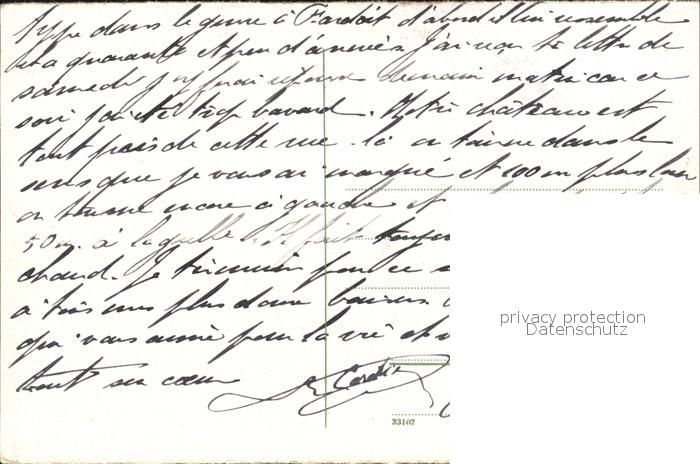 type dans le genre à d'abord il lui ressemble
et a quarante et peu d'années. J'ai reçu ta lettre de
samedi j'y ferai réponse demain matin car ce
soir j'ai été trop bavard. Notre château est
tout près de cette rue là on tourne dans le
sens que je vous ai marqué et 100 m plus loin
on tourne encore à gauche et
50 m. à laquelle Il fait toujours
chaud. Je termine pour ce s
à tous mes plus doux baisers.
qui vous aime pour la vie et
tout son cœur
privacy protection
Datenschutz
33107